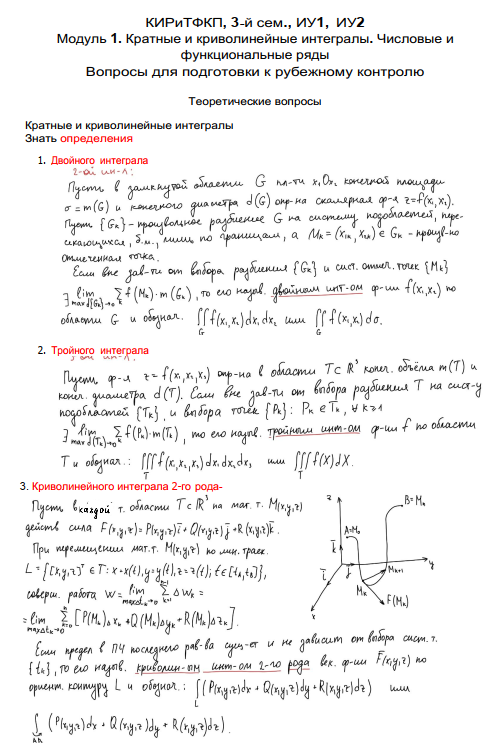 КИРиТФКП, 3-й сем., ИУ1, ИУ2
Модуль 1. Кратные и криволинейные интегралы. Числовые и
функциональные ряды
Вопросы для подготовки к рубежному контролю
Теоретические вопросы
Кратные и криволинейные интегралы
Знать определения
1. Двойного интеграла
2-ой ин-л:
Пусть в замкнутой области G пл-ти x₁Ox₂ конечной площади
σ=m(G) и конечного диаметра d(G) опр-на скалярная ф-я z=f(x₁,x₂).
Пусть {Gₖ} - произвольное разбиение G на систему подобластей, пере-
секающихся, б.м., лишь по границам, а Mₖ=(x₁ₖ, x₂ₖ)∈Gₖ - произв-но
отмеченная точка.
Если вне зав-ти от выбора разбиения {Gₖ} и сист. отмеч. точек {Mₖ}
∃ lim max d(Gₖ)→0 Σₖ f(Mₖ)·m(Gₖ), то его назыв. двойным инт-ом ф-ии f(x₁,x₂) по
области G и обознач. ∬_G f(x₁,x₂)dx₁dx₂ или ∬_G f(x₁,x₂)dσ.
2. Тройного интеграла
3-ой ин-л:
Пусть ф-я z=f(x₁,x₂,x₃) опр-на в области T⊂ℝ³ конеч. объёма m(T) и
конеч. диаметра d(T). Если вне зав-ти от выбора разбиения T на сист-у
подобластей {Tₖ}, и выбора точек {Pₖ}: Pₖ∈Tₖ, ∀k≥1
∃ lim max d(Tₖ)→0 Σₖ f(Pₖ)·m(Tₖ), то его назыв. тройным инт-ом ф-ии f по области
T и обознач.: ∭_T f(x₁,x₂,x₃)dx₁dx₂dx₃ или ∭_T f(X)dX.
3. Криволинейного интеграла 2-го рода-
Пусть в каждой т. области T⊂ℝ³ на мат. т. M(x,y,z)
действ сила F̄(x,y,z)=P(x,y,z)ī+Q(x,y,z)j̄+R(x,y,z)k̄.
При перемещении мат.т. M(x,y,z) по лин. траек.
L={[x,y,z]ᵀ∈T: x=x(t), y=y(t), z=z(t); t∈[t_A,t_B]},
соверш. работа W = lim max Δtₖ→0 Σ ΔWₖ =
= lim max Δtₖ→0 Σ [P(Mₖ)Δxₖ+Q(Mₖ)Δyₖ+R(Mₖ)Δzₖ].
z
A=M₀
B=Mₙ
k̄
ī
j̄
y
x
Mₖ
Mₖ₊₁
F̄(Mₖ)
Если предел в ПЧ последнего рав-ва сущ-ет и не зависит от выбора сист. т.
{tₖ}, то его назыв. криволин-ым инт-ом 2-го рода век. ф-ии F̄(x,y,z) по
ориент. контуру L и обознач.: ∫_L (P(x,y,z)dx + Q(x,y,z)dy + R(x,y,z)dz) или
∫_AB (P(x,y,z)dx + Q(x,y,z)dy + R(x,y,z)dz).